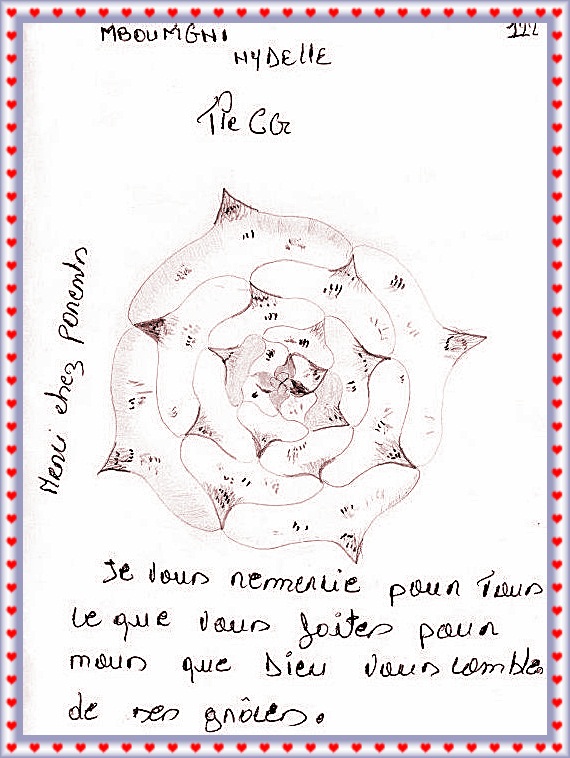 MBOUMGNI
NYDELLE
Tle CG
Merci chez parents
Je vous remercie pour Tous
ce que vous faites pour
nous que Dieu vous comble
de ses grâces.